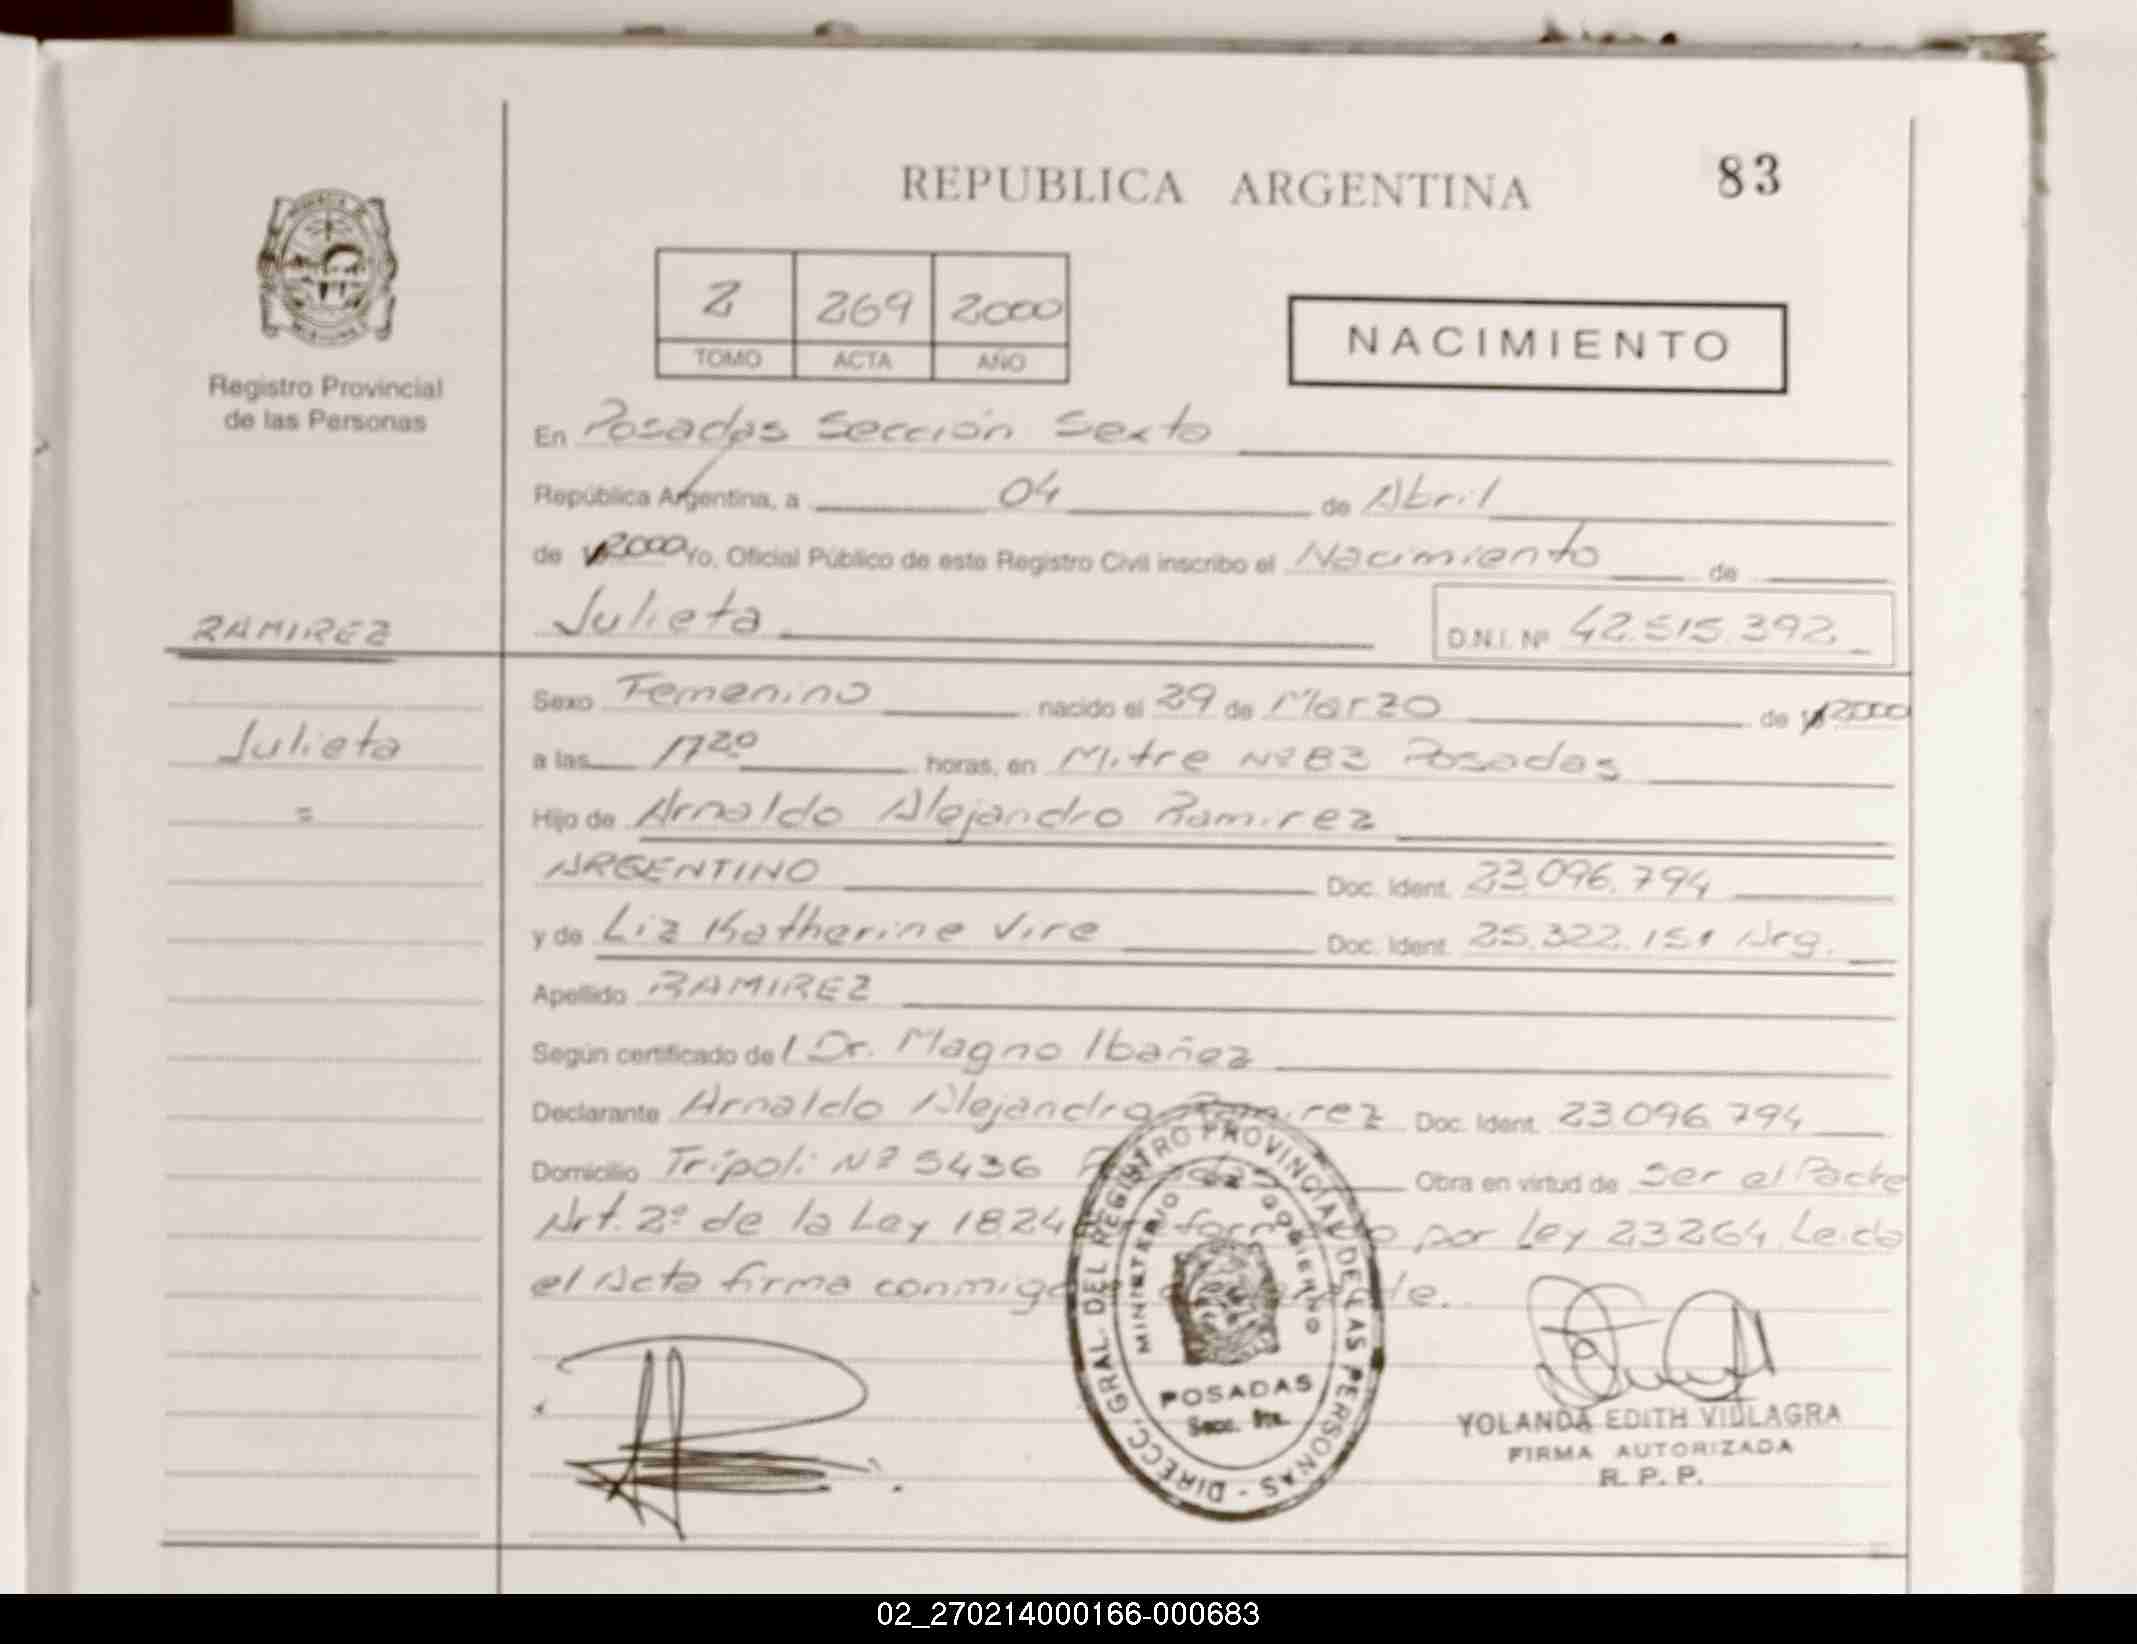 REPUBLICA ARGENTINA
83
2 269 2000
TOMO ACTA AÑO
NACIMIENTO
Registro Provincial
de las Personas
En Posadas Sección Sexto
República Argentina, a 04 de Abril
de 2000 Yo, Oficial Público de este Registro Civil inscribo el Nacimiento de
Julieta
D.N.I. Nº 42.515.392
RAMIREZ
Julieta
=
Sexo Femenino nacido el 29 de Marzo de 2000
a las 17 20 horas, en Mitre Nº 83 Posadas
Hijo de Arnaldo Alejandro Ramirez
ARGENTINO Doc. Ident. 23.096.794
y de Liz Katherine Vire Doc. Ident. 25.322.151 Arg.
Apellido RAMIREZ
Según certificado del Dr. Magno Ibañez
Declarante Arnaldo Alejandro Ramirez Doc. Ident. 23.096.794
Domicilio Tripoli Nº 5436 Obra en virtud de Ser el Padre
Art. 2º de la Ley 1824 por Ley 23264. Leida
el Acta firma conmigo
DIRECC. GRAL. DEL REGISTRO PROVINCIAL DE LAS PERSONAS -
MINISTERIO DE GOBIERNO
POSADAS
Secc. 
YOLANDA EDITH VILLAGRA
FIRMA AUTORIZADA
R. P. P.
02_270214000166-000683